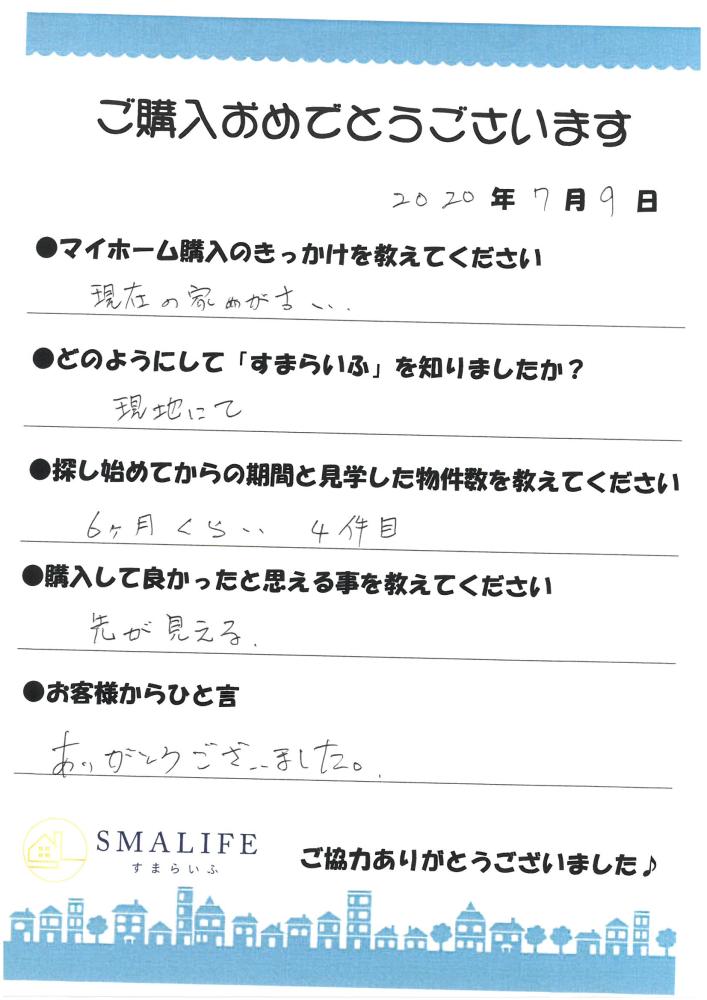 ご購入おめでとうございます
2020年7月9日
●マイホーム購入のきっかけを教えてください
現在の家が古い..
●どのようにして「すまらいふ」を知りましたか？
現地にて
●探し始めてからの期間と見学した物件数を教えてください
6ヶ月くらい 4件目
●購入して良かったと思える事を教えてください
先が見える.
●お客様からひと言
ありがとうございました。
SMALIFE
すまらいふ
ご協力ありがとうございました♪